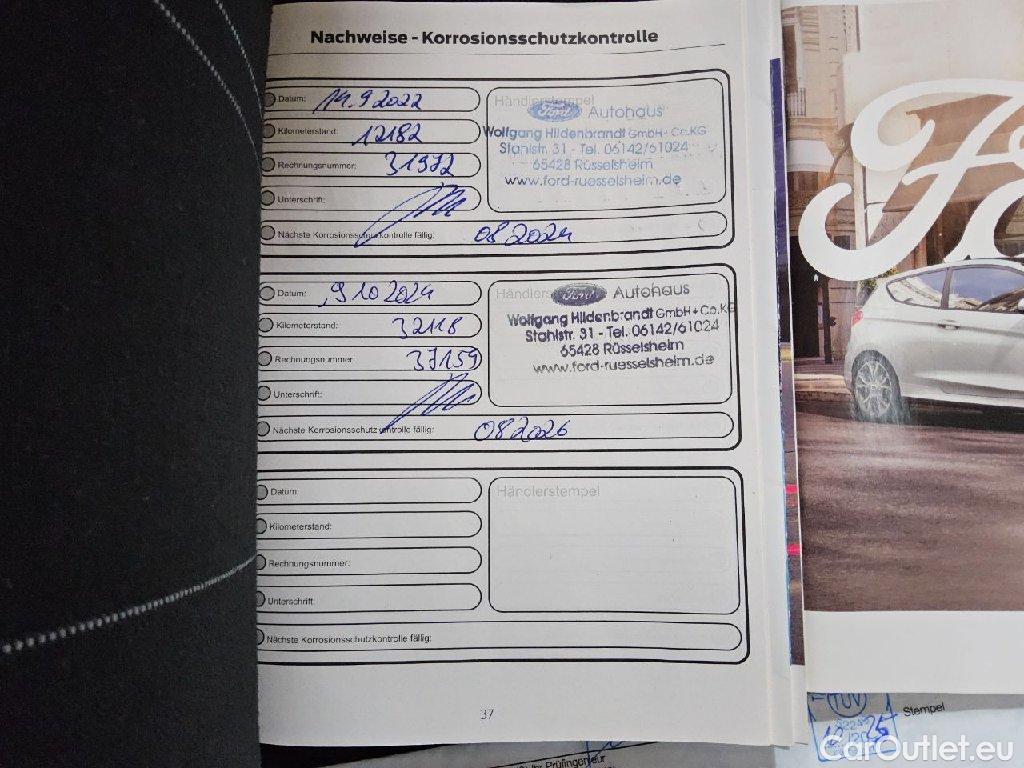 Nachweise - Korrosionsschutzkontrolle
Datum: 14.9 2022
Kilometerstand: 12182
Rechnungsnummer: 31972
Unterschrift:
Nächste Korrosionsschutzkontrolle fällig: 08 2024
Händlerstempel
Ford Autohaus
Wolfgang Hildenbrandt GmbH + Co.KG
Stahlstr. 31 - Tel. 06142/61024
65428 Rüsselsheim
www.ford-ruesselsheim.de
Datum: 9 10 2024
Kilometerstand: 32118
Rechnungsnummer: 37159
Unterschrift:
Nächste Korrosionsschutzkontrolle fällig: 08 2026
Ford Autohaus
Wolfgang Hildenbrandt GmbH + Co.KG
Stahlstr. 31 - Tel. 06142/61024
65428 Rüsselsheim
www.ford-ruesselsheim.de
Datum:
Kilometerstand:
Rechnungsnummer:
Unterschrift:
Nächste Korrosionsschutzkontrolle fällig:
Händlerstempel
37
TÜV
Stempel
Prüfingenieur
CarOutlet.eu